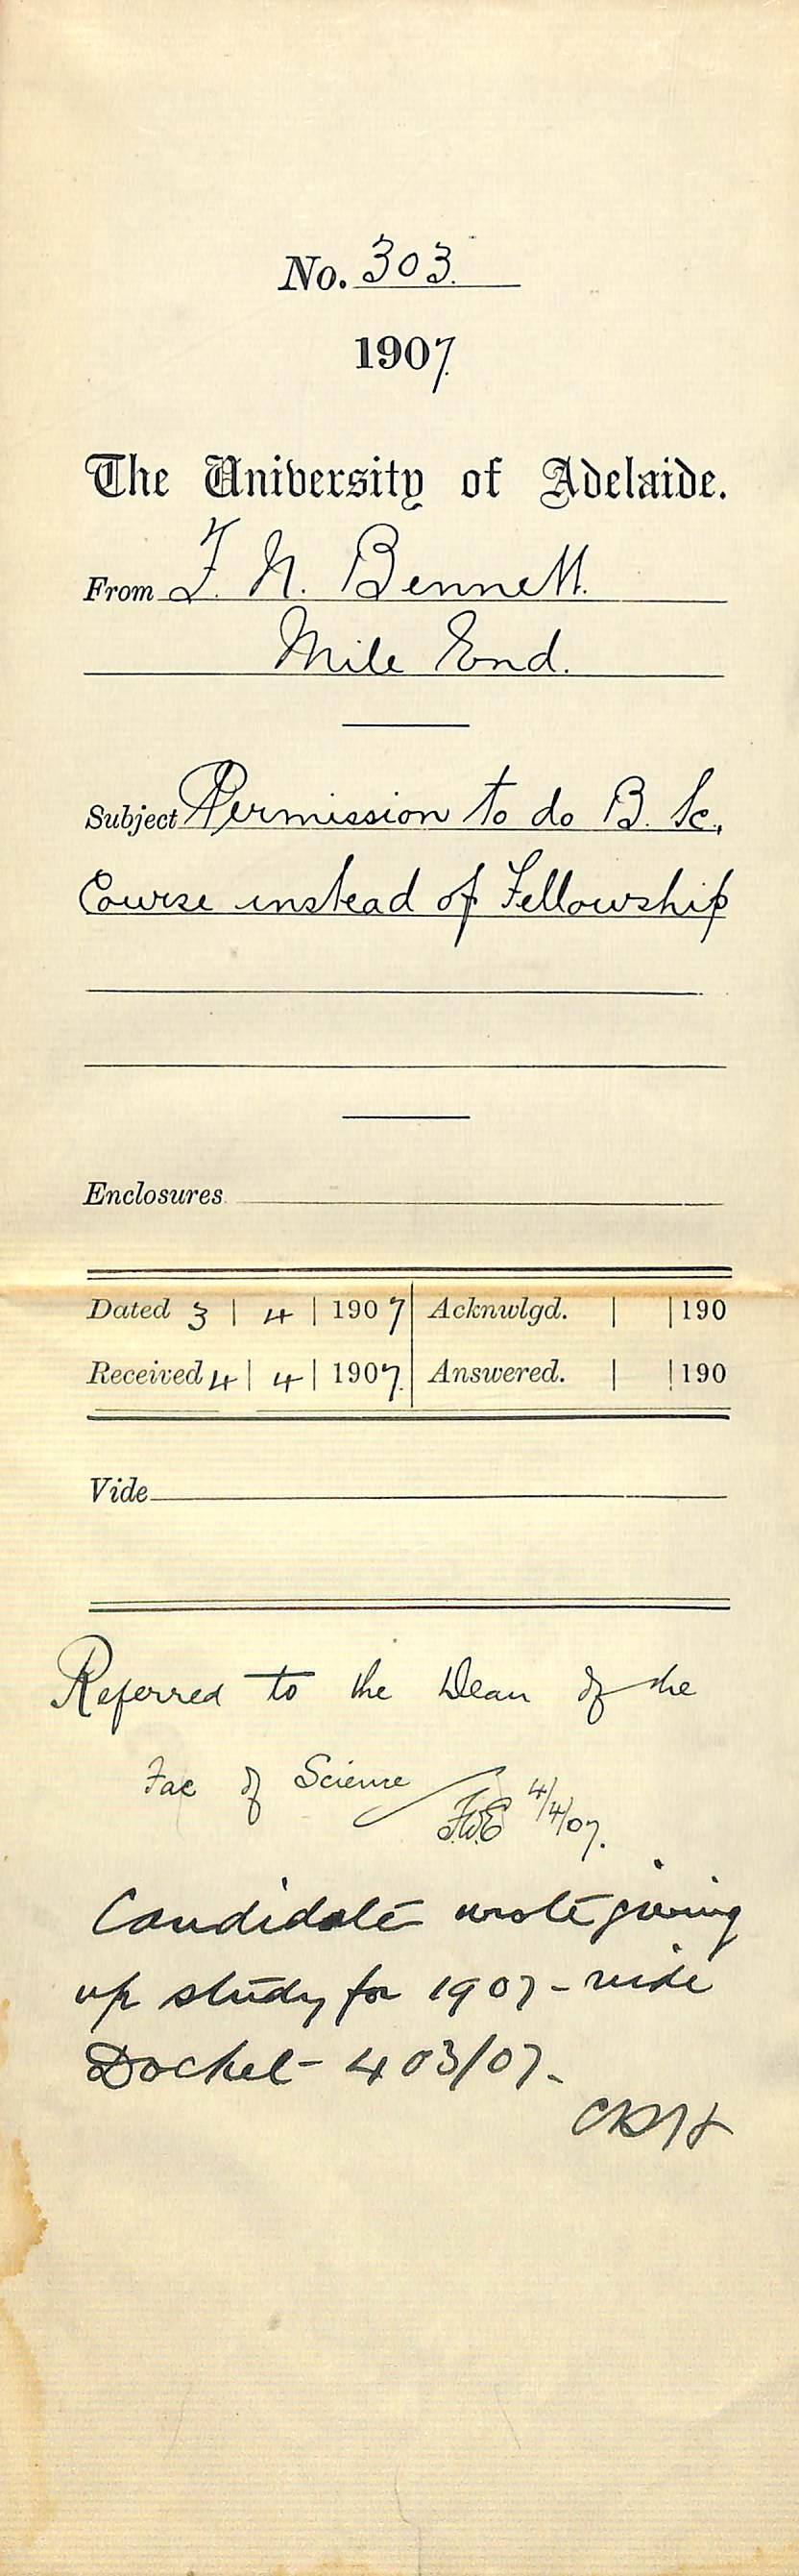 No. 303.
1907.
The University of Adelaide.
From F. N. Bennett.
Mile End.
Subject Permission to do B. Sc.,
Course instead of Fellowship
Enclosures
Dated 3 | 4 | 1907 Acknwlgd. | | 190
Received 4 | 4 | 1907. Answered. | | 190
Vide
Referred to the Dean of the
Fac of Science
F.W.E 4/4/07.
Candidate wrote giving
up study for 1907 - vide
Docket - 403/07.